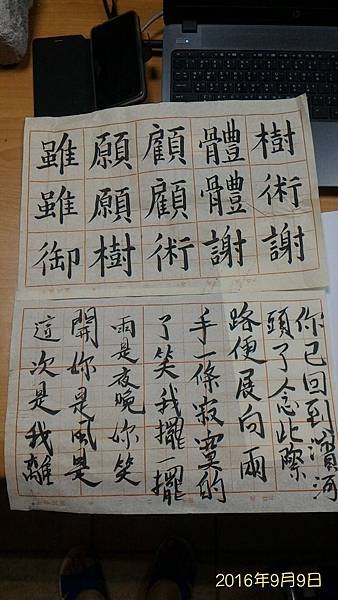 樹術謝
體體謝
顧顧術
願願樹
雖雖御
這次是我離
開妳是風是
雨是夜晚妳笑
了笑我擺一擺
手一條寂寞的
路便展向兩
頭了念此際
你已回到濱河
2016年9月9日